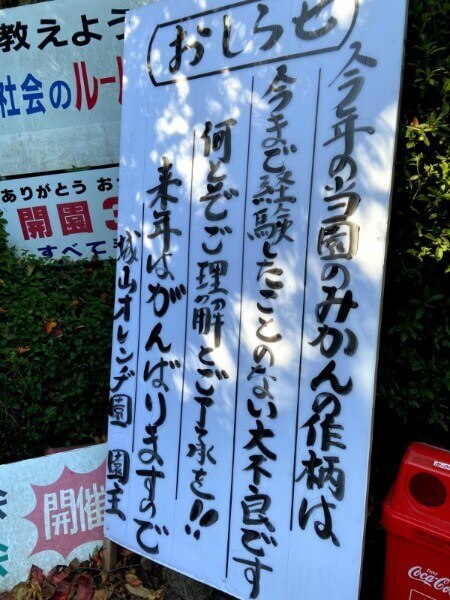 おしらせ
今年の当園のみかんの作柄は、
今まで経験したことのない大不良です
何とぞご理解とご了承を!!
来年はがんばりますので
城山オレンジ園 園主
教えよう
社会のルール
ありがとう お
開園 3
すべて
開催
Coca-Cola